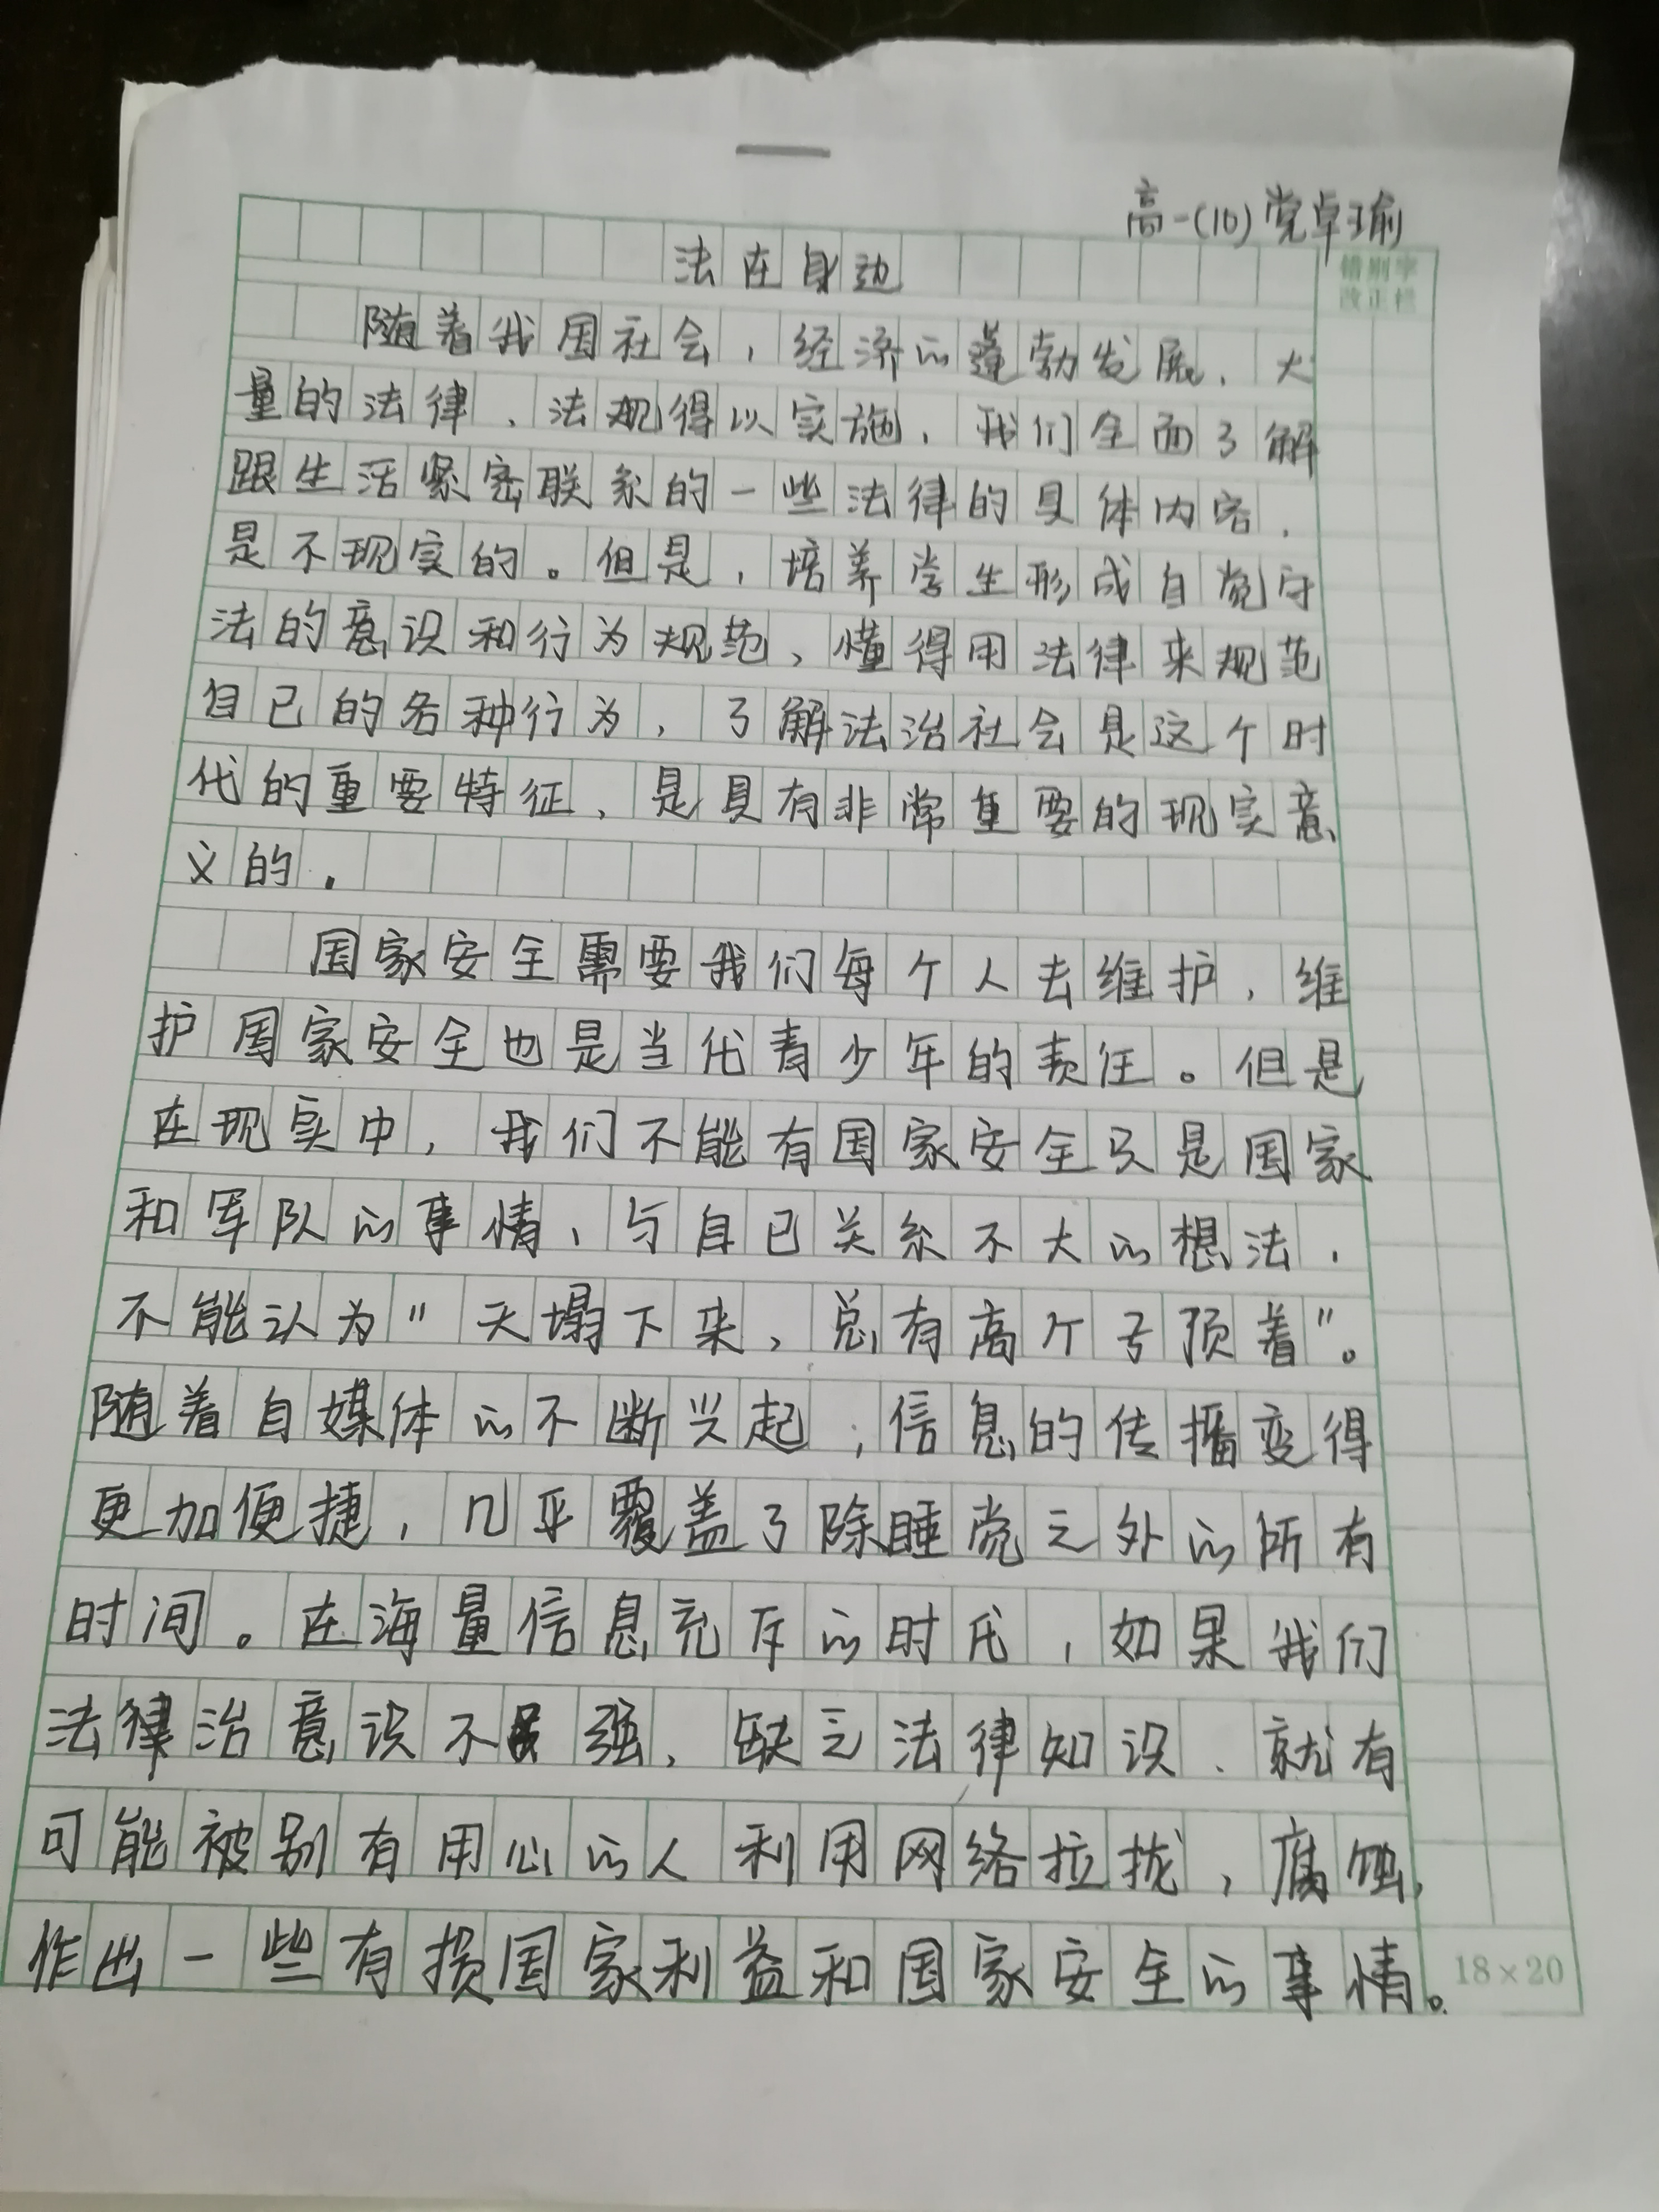 高一(10) 党卓瑜
法在身边
错别字
改正栏
随着我国社会,经济的蓬勃发展,大
量的法律、法规得以实施,我们全面了解
跟生活紧密联系的一些法律的具体内容,
是不现实的。但是,培养学生形成自觉守
法的意识和行为规范,懂得用法律来规范
自己的各种行为,了解法治社会是这个时
代的重要特征,是具有非常重要的现实意
义的.
国家安全需要我们每个人去维护,维
护国家安全也是当代青少年的责任。但是
在现实中,我们不能有国家安全只是国家
和军队的事情,与自己关系不大的想法,
不能认为"天塌下来,总有高个子顶着"。
随着自媒体的不断兴起,信息的传播变得
更加便捷,几乎覆盖了除睡觉之外的所有
时间。在海量信息充斥的时代,如果我们
法律治意识不强,缺乏法律知识、就有
可能被别有用心的人利用网络拉拢,腐蚀,
作出一些有损国家利益和国家安全的事情。
18×20